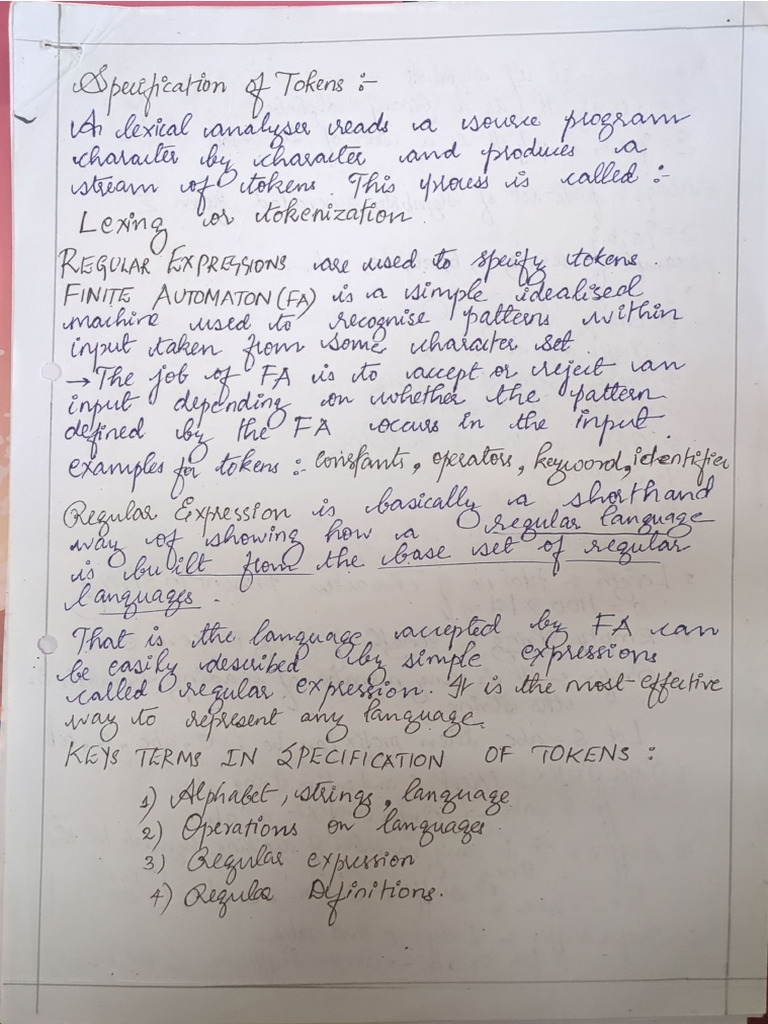 Specification of Tokens :-
A lexical analyser reads a source program
character by character and produces a
stream of tokens. This process is called :-
Lexing or tokenization
REGULAR EXPRESSIONS are used to specify tokens.
FINITE AUTOMATON (FA) is a simple idealised
machine used to recognise patterns within
input taken from some character set
→ The job of FA is to accept or reject an
input depending on whether the pattern
defined by the FA occurs in the input.
examples for tokens :- constants, operators, keyword, identifier
Regular Expression is basically a shorthand
way of showing how a regular language
is built from the base set of regular
languages.
That is the language accepted by FA can
be easily described by simple expressions
called regular expression. It is the most-effective
way to represent any language.
KEYS TERMS IN SPECIFICATION OF TOKENS :
1) Alphabet, strings, language
2) Operations on languages
3) Regular expression
4) Regular Definitions.